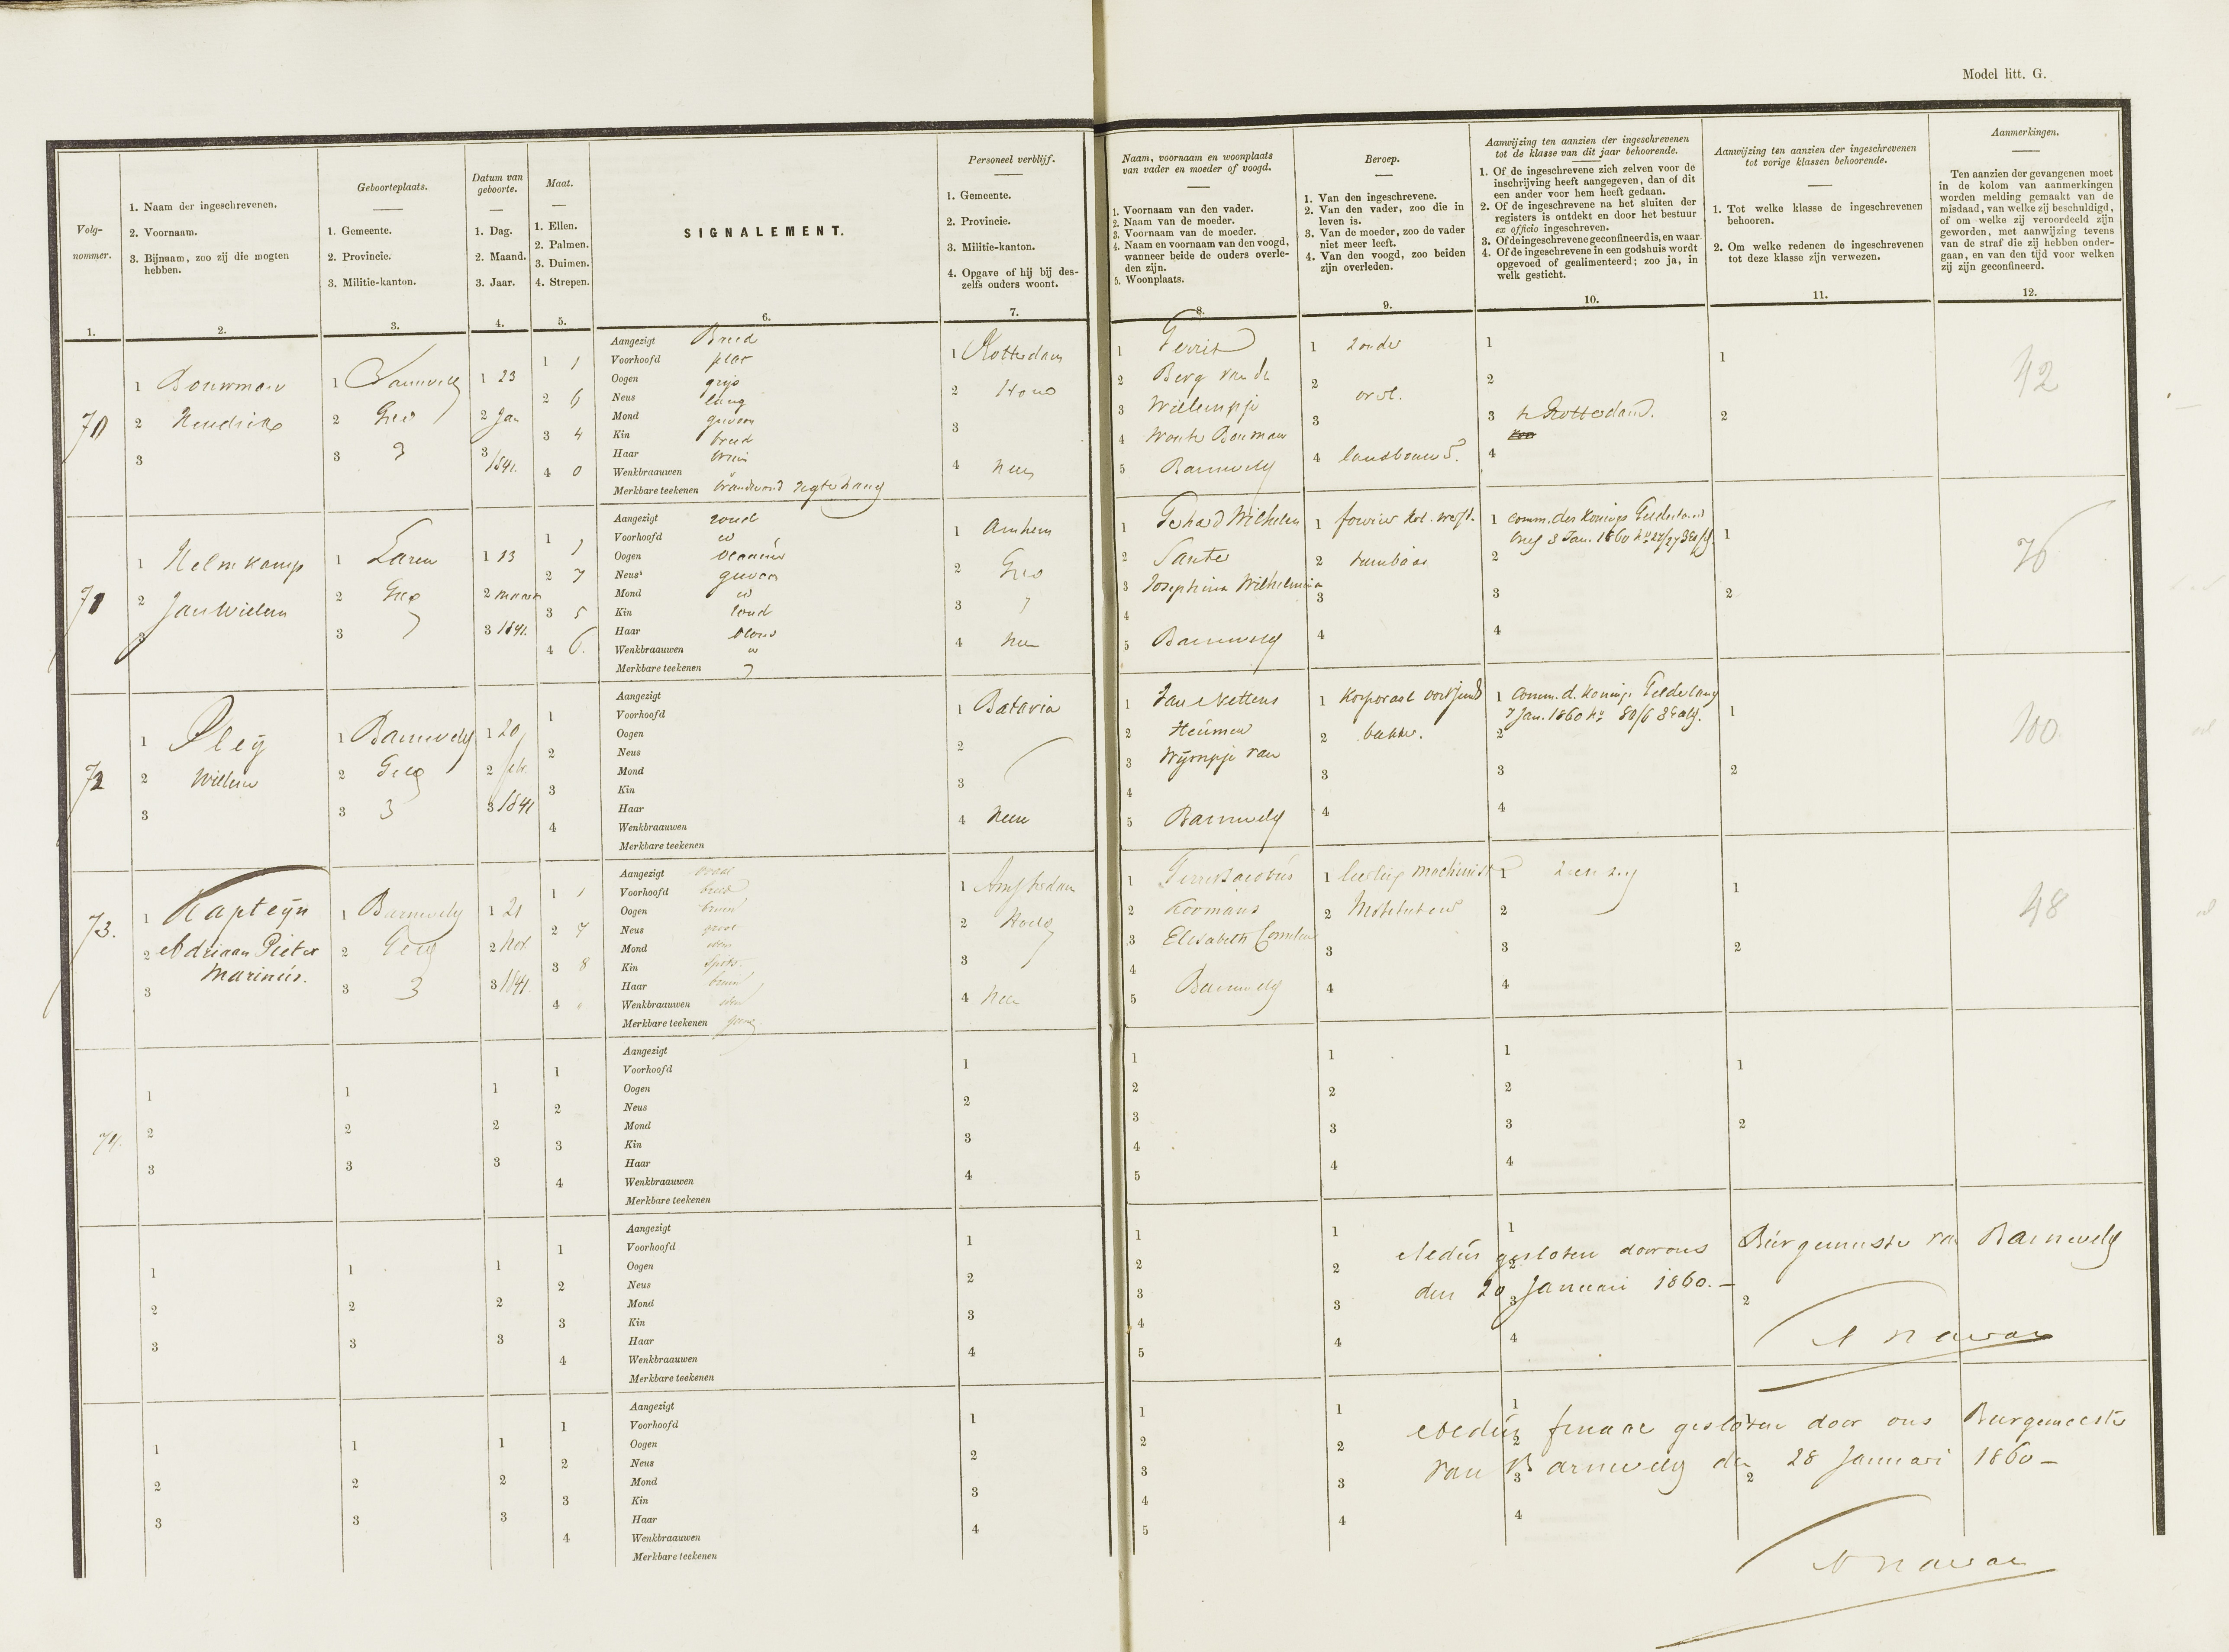 Model litt. G.
Volg-
nommer.
1.
1. Naam der ingeschrevenen.
2. Voornaam.
3. Bijnaam, zoo zij die mogten
hebben.
2.
Geboorteplaats.
1. Gemeente.
2. Provincie.
3. Militie-kanton.
3.
Datum van
geboorte.
1. Dag.
2. Maand.
3. Jaar.
4.
Maat.
1. Ellen.
2. Palmen.
3. Duimen.
4. Strepen.
5.
SIGNALEMENT.
6.
Personeel verblijf.
1. Gemeente.
2. Provincie.
3. Militie-kanton.
4. Opgave of hij bij des-
zelfs ouders woont.
7.
Naam, voornaam en woonplaats
van vader en moeder of voogd.
1. Voornaam van den vader.
2. Naam van de moeder.
3. Voornaam van de moeder.
4. Naam en voornaam van den voogd,
wanneer beide de ouders overle-
den zijn.
5. Woonplaats.
8.
Beroep.
1. Van den ingeschrevene.
2. Van den vader, zoo die in
leven is.
3. Van de moeder, zoo de vader
niet meer leeft.
4. Van den voogd, zoo beiden
zijn overleden.
9.
Aanwijzing ten aanzien der ingeschrevenen
tot de klasse van dit jaar behoorende.
1. Of de ingeschrevene zich zelven voor de
inschrijving heeft aangegeven, dan of dit
een ander voor hem heeft gedaan.
2. Of de ingeschrevene na het sluiten der
registers is ontdekt en door het bestuur
ex officio ingeschreven.
3. Of de ingeschrevene geconfineerd is, en waar
4. Of de ingeschrevene in een godshuis wordt
opgevoed of gealimenteerd; zoo ja, in
welk gesticht.
10.
Aanwijzing ten aanzien der ingeschrevenen
tot vorige klassen behoorende.
1. Tot welke klasse de ingeschrevenen
behooren.
2. Om welke redenen de ingeschrevenen
tot deze klasse zijn verwezen.
11.
Aanmerkingen.
Ten aanzien der gevangenen moet
in de kolom van aanmerkingen
worden melding gemaakt van de
misdaad, van welke zij beschuldigd,
of om welke zij veroordeeld zijn
geworden, met aanwijzing tevens
van de straf die zij hebben onder-
gaan, en van den tijd voor welken
zij zijn geconfineerd.
12.
70
1 Bouwman
2 Hendrik
3
1 Barneveld
2 Geld
3 3
1 23
2 Jan
3 1841.
1 1
2 6
3 4
4 0
Aangezigt Breed
Voorhoofd plat
Oogen grijs
Neus lang
Mond gewoon
Kin breed
Haar bruin
Wenkbraauwen
Merkbare teekenen brandwond regterhand
1 Rotterdam
2 Holld
3
4 neen
1 Gerrit
2 Berg van de
3 Willempje
4 Wouter Bouman
5 Barneveld
1 zonder
2 overl.
3
4 landbouwr.
1
2
3 te Rotterdam.
4
1
2
42
71
1 Helmkamp
2 Jan Willem
3
1 Laren
2 Geld
3
1 13
2 maart
3 1841.
1 1
2 7
3 5
4 6.
Aangezigt rond
Voorhoofd id
Oogen blaauw
Neus gewoon
Mond id
Kin rond
Haar blond
Wenkbraauwen id
Merkbare teekenen
1 Arnhem
2 Geld
3
4 neen
1 Gerhard Wilhelm
2 Sante
3 Josephina Wilhelmina
4
5 Barneveld
1
2 tuinbaas
3
4
1 comm. des Konings Gelderland
brief 3 Jan. 1860
2
3
4
1
2
76
72
1 Pleij
2 Willem
3
1 Barneveld
2 Geld
3 3
1 20
2 febr.
3 1841
1
2
3
4
Aangezigt
Voorhoofd
Oogen
Neus
Mond
Kin
Haar
Wenkbraauwen
Merkbare teekenen
1 Batavia
2
3
4 neen
1 Jan Nettens
2 Heumen
3 Wijmpje van
4
5 Barneveld
1 Korporaal
2 bakker.
3
4
1 comm. d. Konings Gelderland
7 Jan. 1860 No 80/6 3e afd.
2
3
4
1
2
100
73.
1 Kapteijn
2 Adriaan Pieter
Marinus.
3
1 Barneveld
2 Geld
3 3
1 21
2 Nov
3 1841.
1 1
2 7
3 8
4
Aangezigt ovaal
Voorhoofd breed
Oogen bruin
Neus groot
Mond idem
Kin spits
Haar bruin
Wenkbraauwen idem
Merkbare teekenen geene
1 Amsterdam
2 Holld
3
4 neen
1 Gerrit Jacobus
2 Koomans
3 Elisabeth Cornelia
4
5 Barneveld
1 leerling machinist
2 Instituteur
3
4
1
2
3
4
1
2
48
74.
1
2
3
1
2
3
1
2
3
1
2
3
4
Aangezigt
Voorhoofd
Oogen
Neus
Mond
Kin
Haar
Wenkbraauwen
Merkbare teekenen
1
2
3
4
1
2
3
4
5
1
2
3
4
1
2
3
4
1
2
1
2
3
1
2
3
1
2
3
1
2
3
4
Aangezigt
Voorhoofd
Oogen
Neus
Mond
Kin
Haar
Wenkbraauwen
Merkbare teekenen
1
2
3
4
1
2
3
4
5
1
2
3
4
1
2
3
4
2
Aldus gesloten door ons Burgemeester van Barneveld
den 20 Januari 1860. –
1
2
3
1
2
3
1
2
3
1
2
3
4
Aangezigt
Voorhoofd
Oogen
Neus
Mond
Kin
Haar
Wenkbraauwen
Merkbare teekenen
1
2
3
4
1
2
3
4
5
1
2
3
4
1
2
3
4
2
Aldus finaal gesloten door ons Burgemeester
van Barneveld den 28 Januari 1860 –